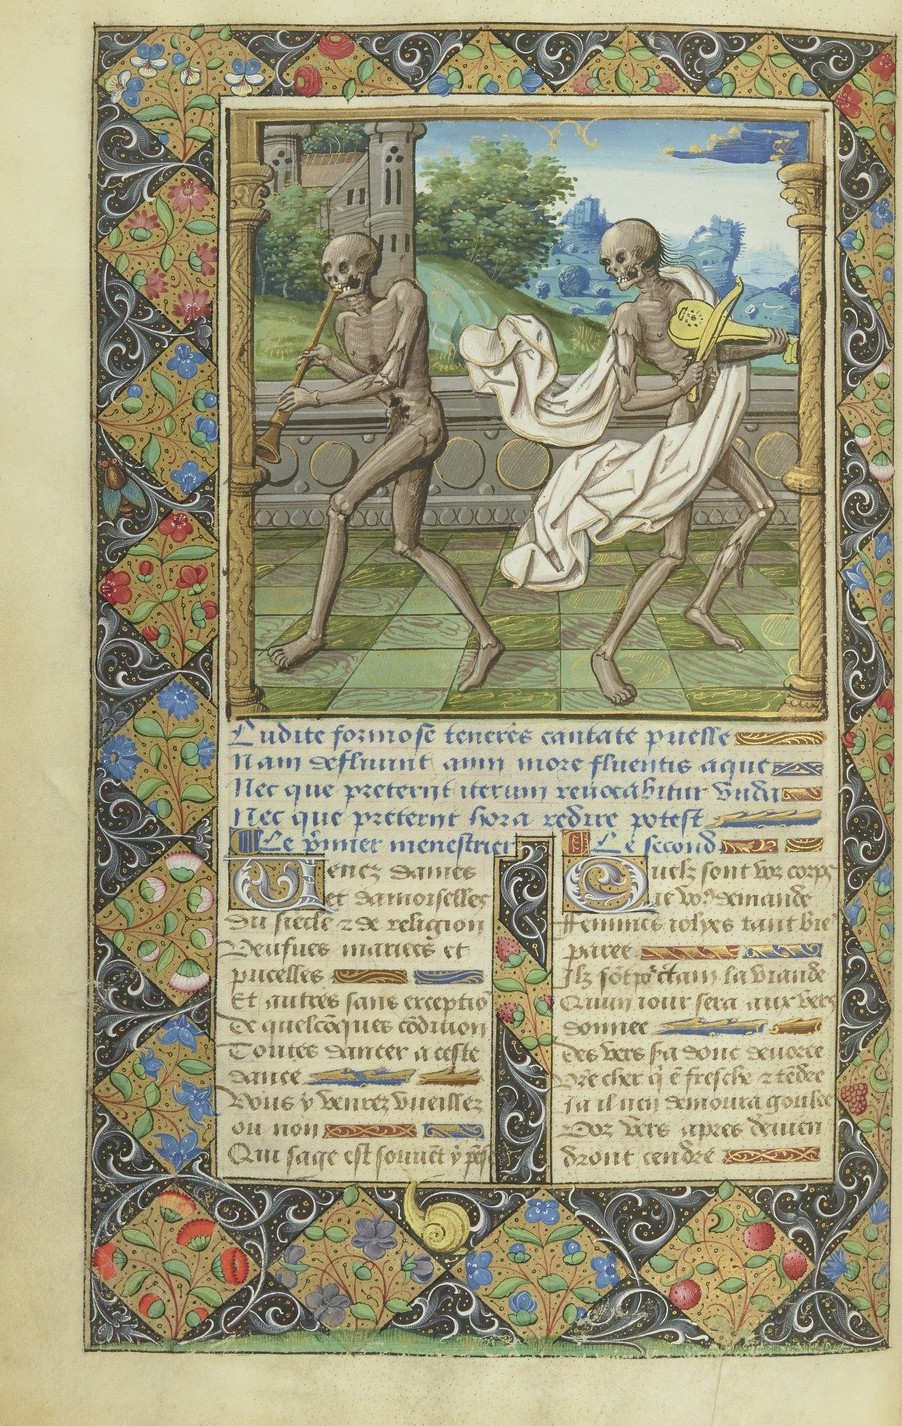 Ludite formose teneres cantate puelle
Nam defluunt anni more fluentis aque
Nec que preterijt iterum reuocabitur vnda
Nec que preterijt hora redire potest
Le pmier menestrier
Venez dames
et damoiselles
Du siecle z de religion
Veufues mariees et
pucelles
Et autres sans exceptio
De quelcoques codicion
Toutes dancer a ceste
dance
Vous y venrez vueillez
ou non
Qui sage est souuet y pese
Le second
Quelz sont voz corps
ie vo⁹ demande
Femmes iolyes tant bie
parees
Ilz sot po certain la viande
Quun iour sera aux vers
donnee
des vers sa donc deuoree
Vre cher q e fresche z tedre
Ja il nen demoura goulee
Voz vers apres deuien
dront cendre